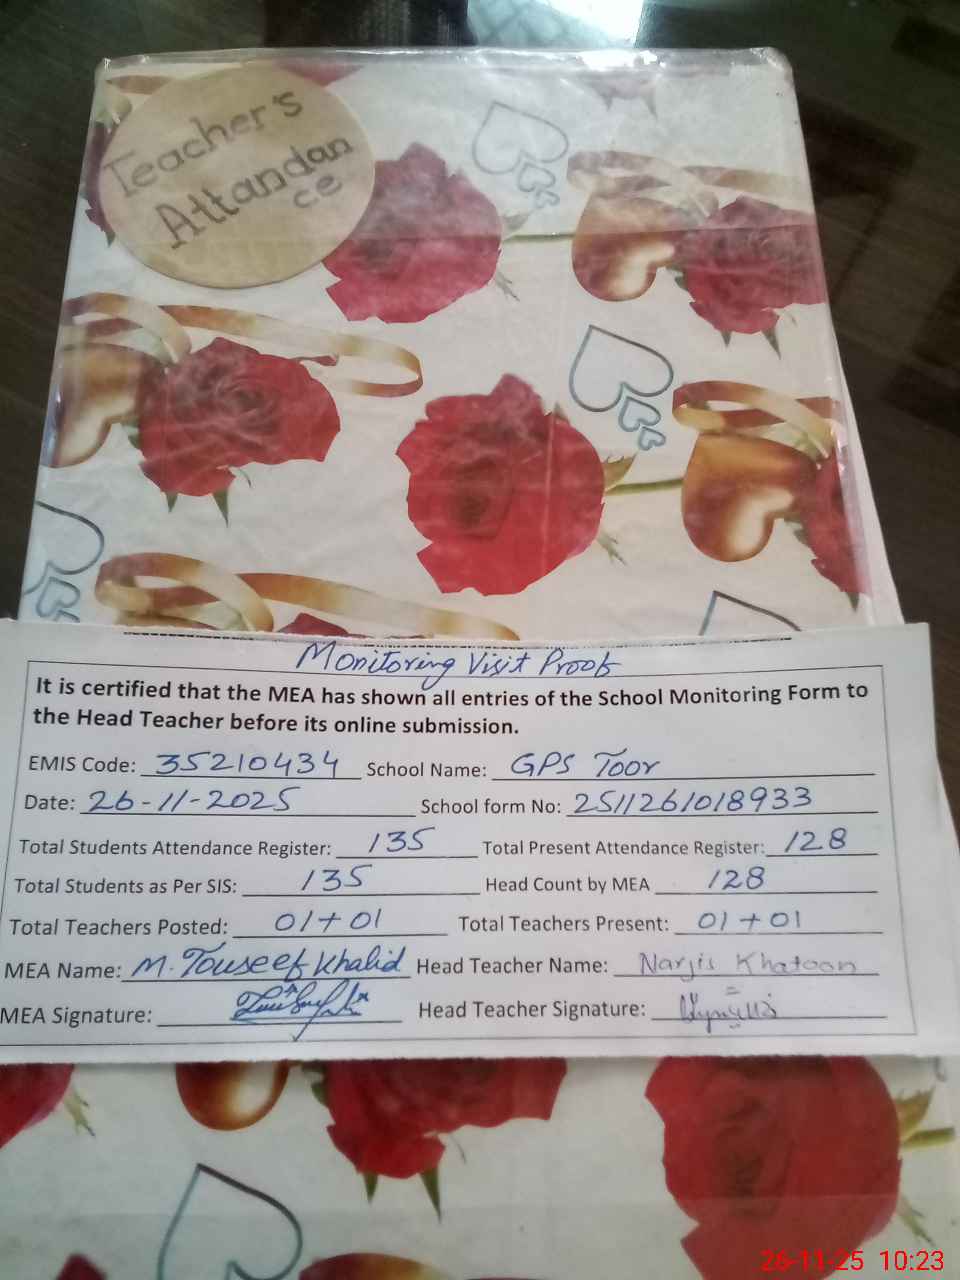 Teacher's
Attandan
ce
Monitoring Visit Proof
It is certified that the MEA has shown all entries of the School Monitoring Form to
the Head Teacher before its online submission.
EMIS Code: 35210434 School Name: GPS Toor
Date: 26-11-2025 School form No: 2511261018933
Total Students Attendance Register: 135 Total Present Attendance Register: 128
Total Students as Per SIS: 135 Head Count by MEA 128
Total Teachers Posted: 01+01 Total Teachers Present: 01+01
MEA Name: M. Touseef Khalid Head Teacher Name: Narjis Khatoon
MEA Signature: Head Teacher Signature:
26-11-25 10:23